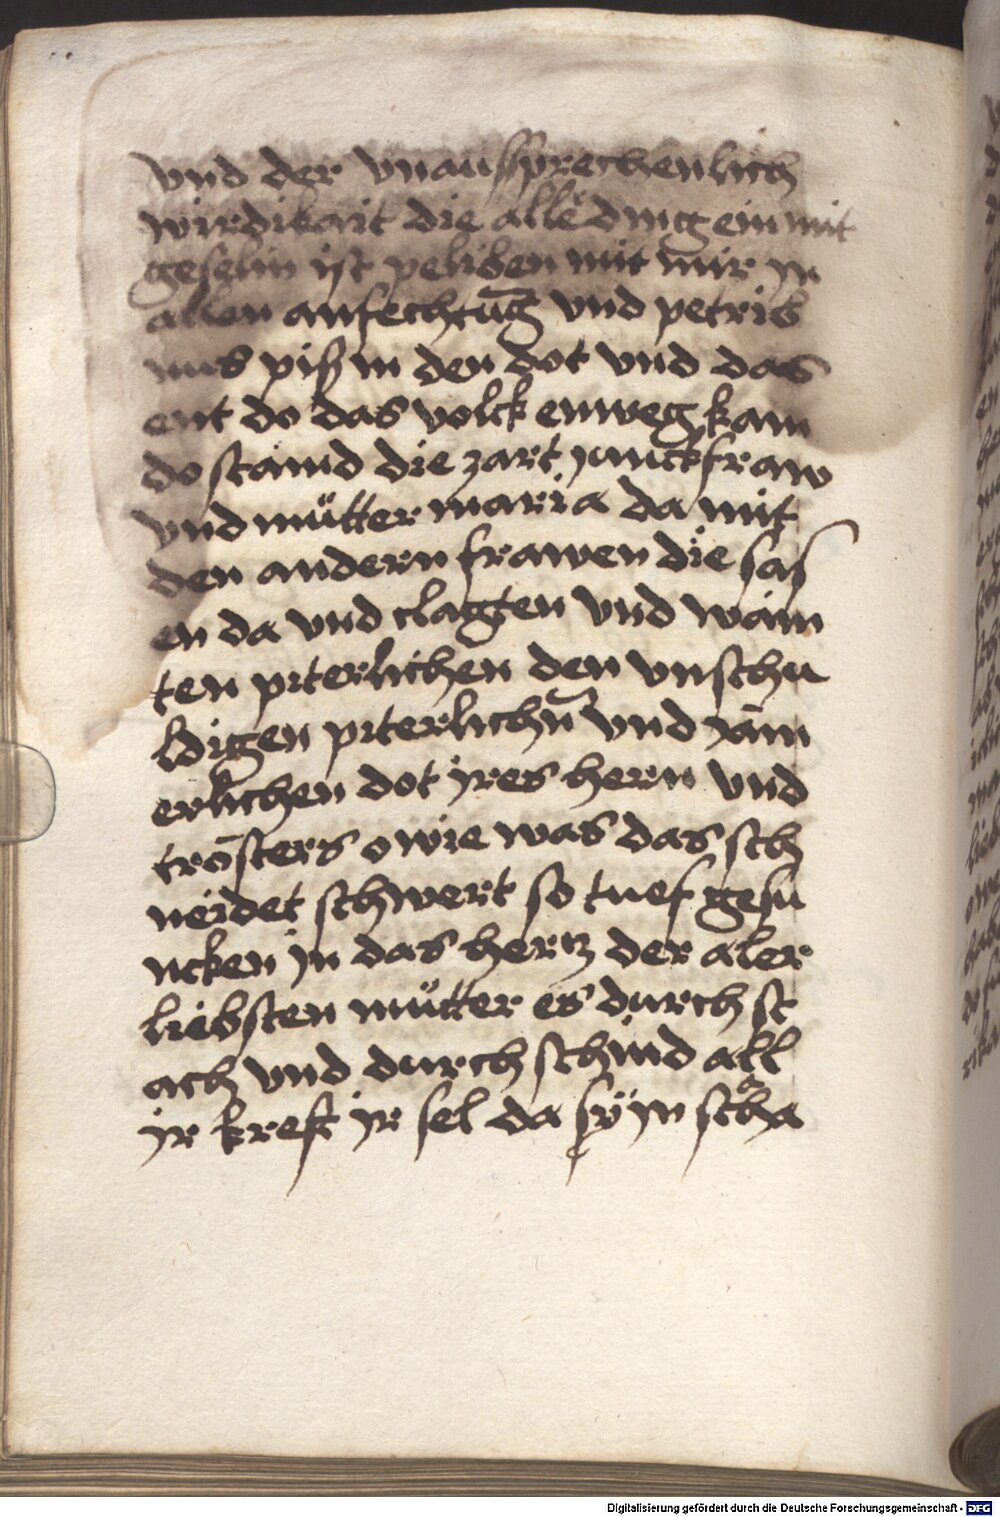 vnd der vnaussprechenlich
wirdikait die alle ding ein mit
geselin ist peliben mit mir in
allen anfechtūg vnd petrib
nus piß in den dot vnd das
ent do das volck enweg kam
do staind die zart junckfraw
vnd mütter maria da mit
den andern frawen die sas
en da vnd clagten vnd wain
ten piterlichen den vnschu
ldigen piterlichn̄ vnd jām
erlichen dot jres hern vnd
trösters o wie was das sch
neidet schwert so tuef gesu
ncken in das hertz der aler
liebsten mütter es durch st
ach vnd durch schnid all
ir kreft ir sel da sÿ in scha
Digitalisierung gefördert durch die Deutsche Forschungsgemeinschaft - DFG